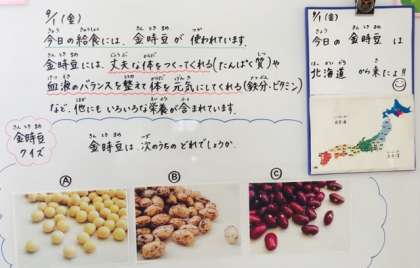 9/1(金)
今日の給食には、金時豆が 使われています。
金時豆には、丈夫な体をつくってくれる(たんぱく質)や
血液のバランスを整えて体を元気にしてくれる(鉄分、ビタミン)
など、他にもいろいろな栄養が含まれています。
金時豆
クイズ
金時豆は 次のうちの どれでしょうか。
A
B
C
9/1(金)
今日の 金時豆 は
北海道 から来たよ!!